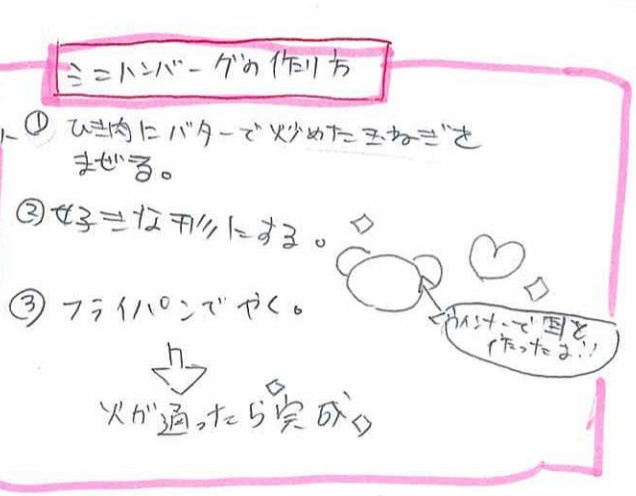 ミニハンバーグの作り方
① ひき肉にバターで炒めた玉ねぎを
まぜる。
② 好きな形にする。
③ フライパンでやく。
火が通ったら完成
ウインナーで
作ったよ!!